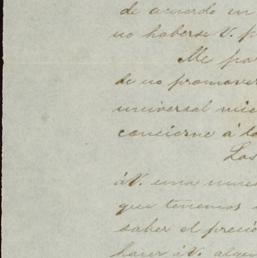 de acuerdo en
no haberse V. p
Me par
de no promover
universal nues
concierne á la
Las
á V. una nues
que tenemos
saber el precio
hacer á V. algu